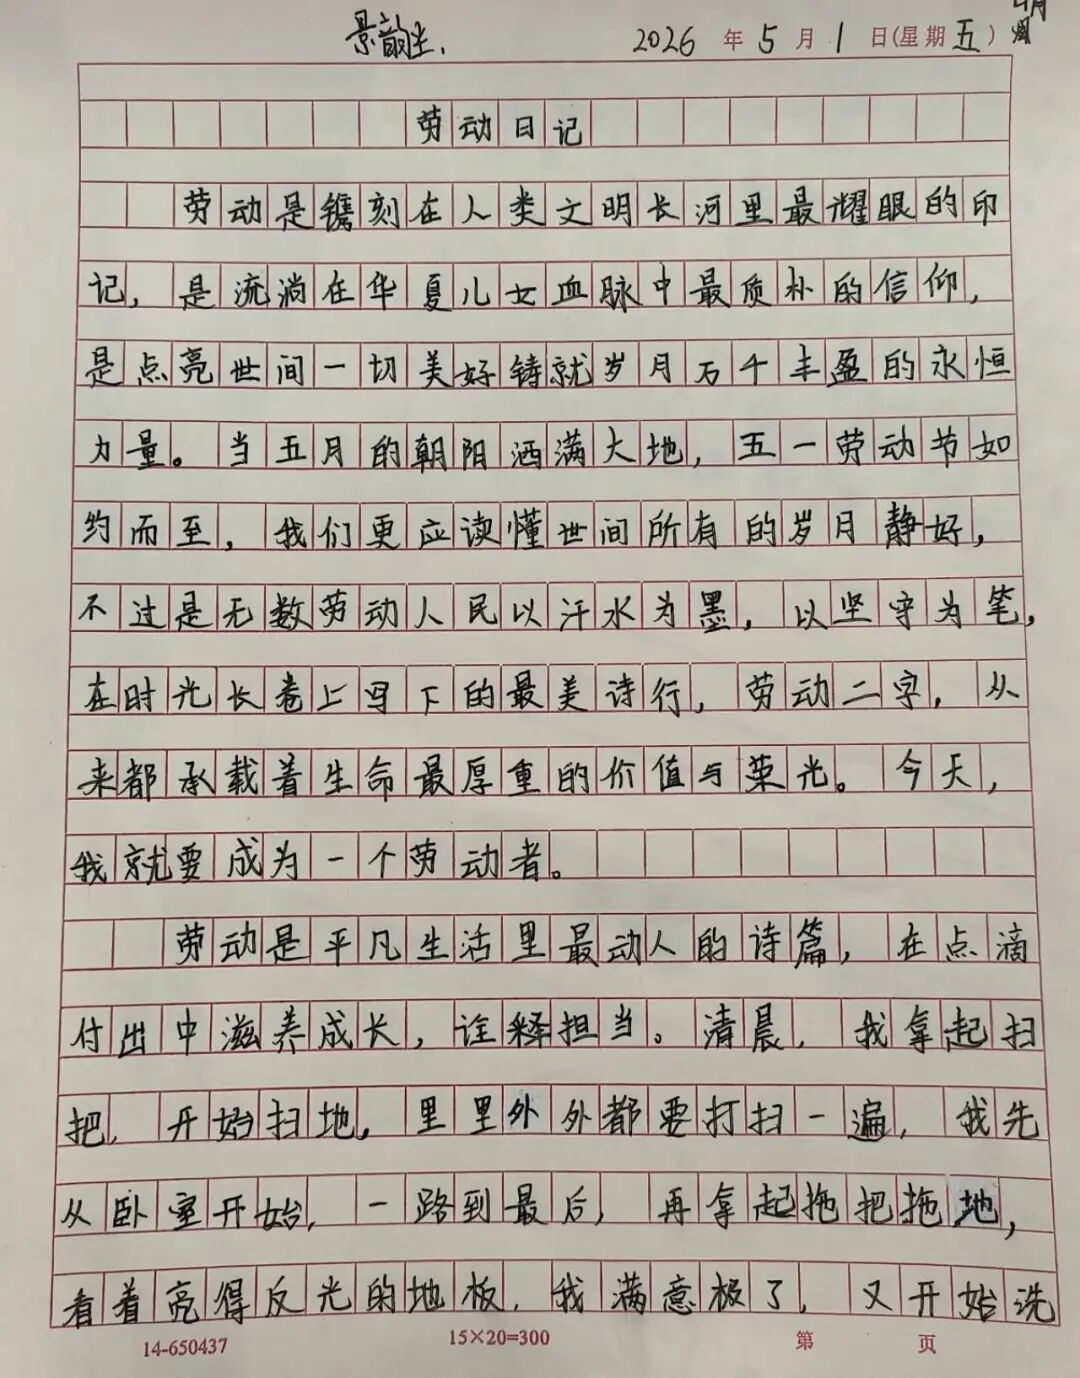 景韵尘.
2026年5月1日(星期五)
劳动日记
劳动是镌刻在人类文明长河里最耀眼的印
记，是流淌在华夏儿女血脉中最质朴的信仰，
是点亮世间一切美好铸就岁月万千丰盈的永恒
力量。当五月的朝阳洒满大地，五一劳动节如
约而至，我们更应读懂世间所有的岁月静好，
不过是无数劳动人民以汗水为墨，以坚守为笔，
在时光长卷上写下的最美诗行，劳动二字，从
来都承载着生命最厚重的价值与荣光。今天，
我就要成为一个劳动者。
劳动是平凡生活里最动人的诗篇，在点滴
付出中滋养成长，诠释担当。清晨，我拿起扫
把，开始扫地，里里外外都要打扫一遍，我先
从卧室开始，一路到最后，再拿起拖把拖地，
看着亮得反光的地板，我满意极了，又开始洗
14-650437
15×20=300
第 页